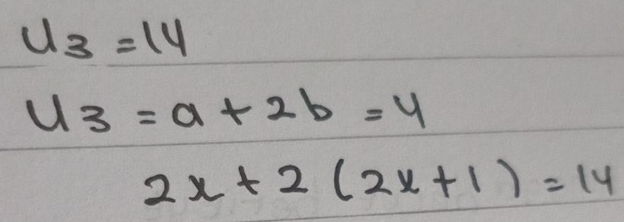 U3 = 14
U3 = a + 2b = 4
2x + 2 (2x + 1) = 14